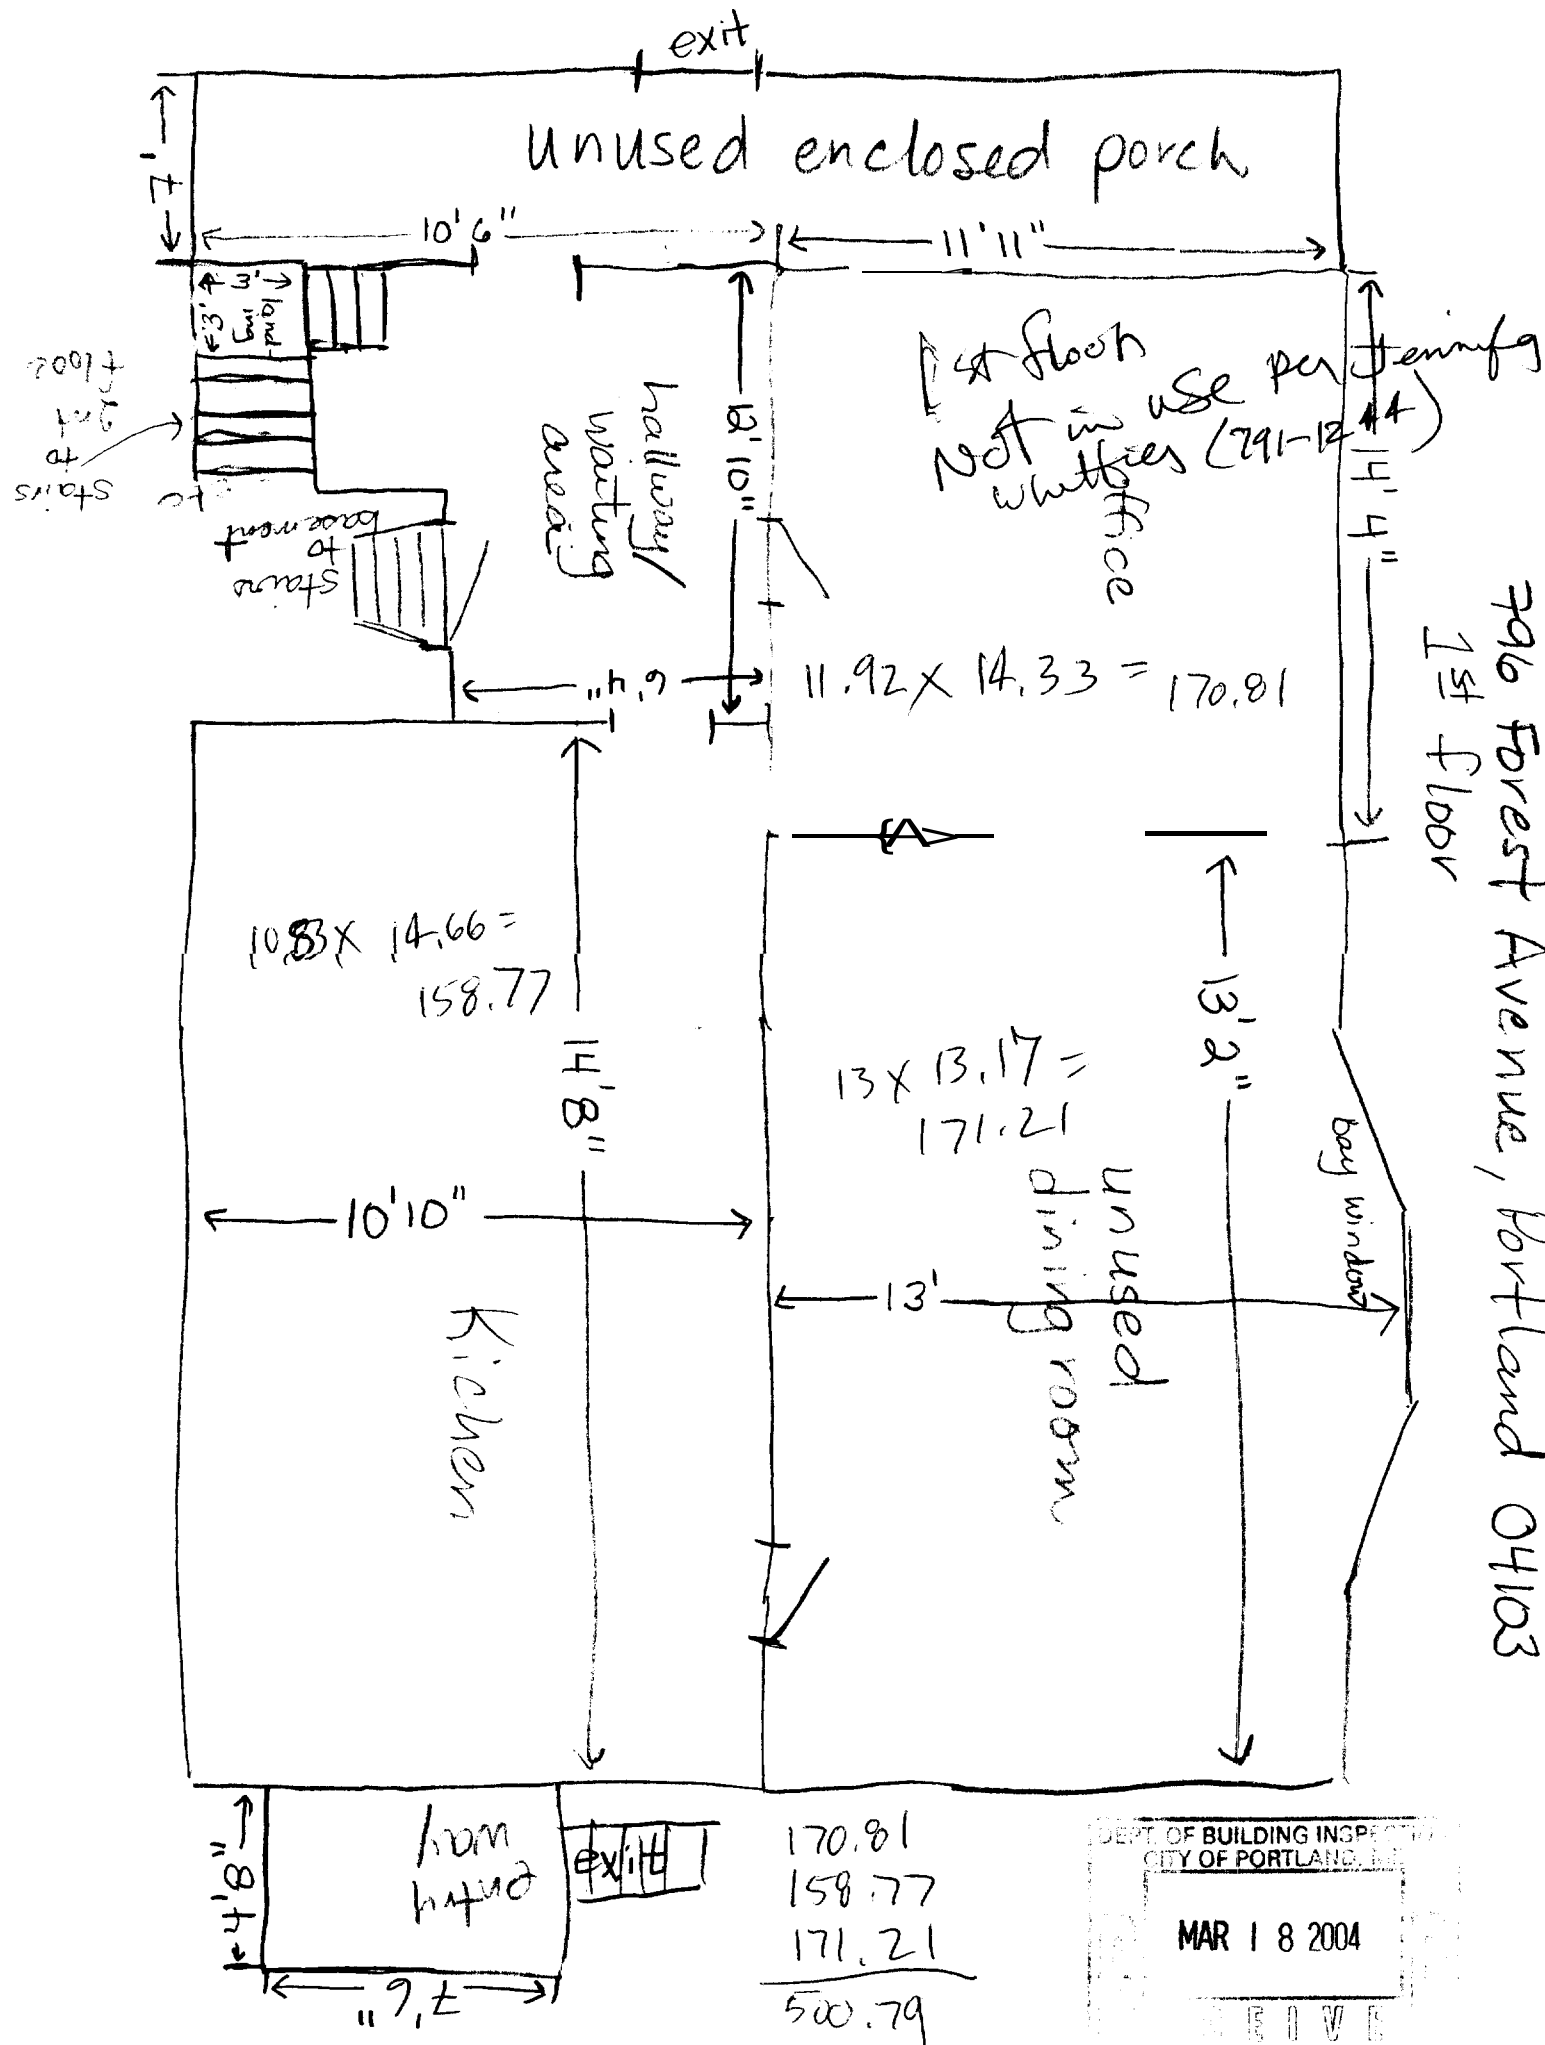 exit
unused enclosed porch
7'
10'6"
11'11"
3'
3'
land
stairs
to
2nd
floor
etc
hallway/
waiting
area
12'10"
1st floor
Not in use per
(791-1244)
office
14'4"
stairs
to
basement
6'4"
11.92 x 14.33 = 170.81
796 Forest Avenue, Portland 04103
1st floor
10.83 x 14.66 =
158.77
14'8"
10'10"
Kichen
13 x 13.17 =
171.21
13'2"
13'
unused
dining room
bay window
entry
way
exit
4'8"
7'6"
170.81
158.77
171.21
500.79
DEPT. OF BUILDING INSPECTION
CITY OF PORTLAND,
MAR 18 2004